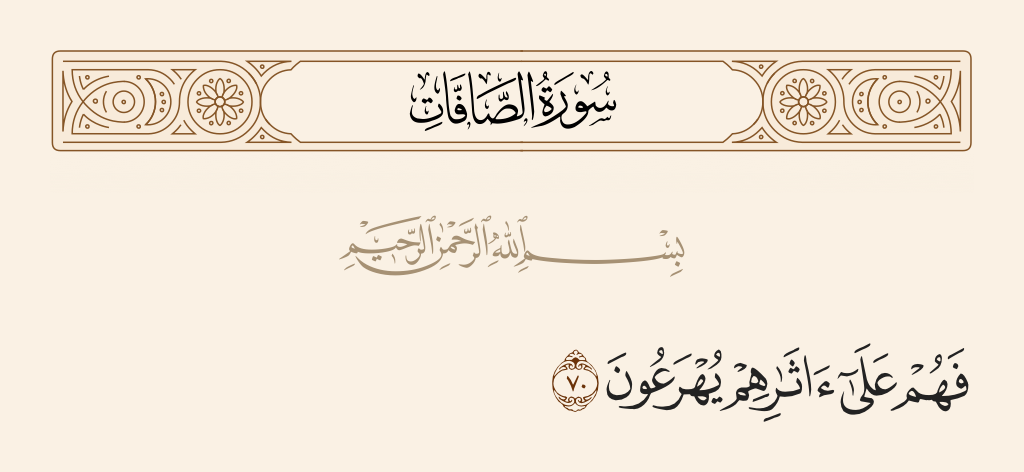 سُورَةُ الصَّافَّاتِ
بِسْمِ ٱللَّهِ ٱلرَّحْمَٰنِ ٱلرَّحِيمِ
فَهُمْ عَلَىٰٓ ءَاثَٰرِهِمْ يُهْرَعُونَ ٧٠